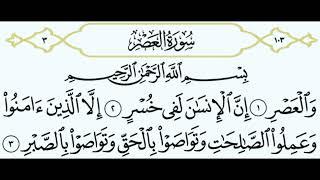 ٣ سُورَةُ الْعَصْرِ ١٠٣
بِسْمِ اللَّهِ الرَّحْمَٰنِ الرَّحِيمِ
وَٱلْعَصْرِ ١ إِنَّ ٱلْإِنسَٰنَ لَفِى خُسْرٍ ٢ إِلَّا ٱلَّذِينَ ءَامَنُوا۟
وَعَمِلُوا۟ ٱلصَّٰلِحَٰتِ وَتَوَاصَوْا۟ بِٱلْحَقِّ وَتَوَاصَوْا۟ بِٱلصَّبْرِ ٣